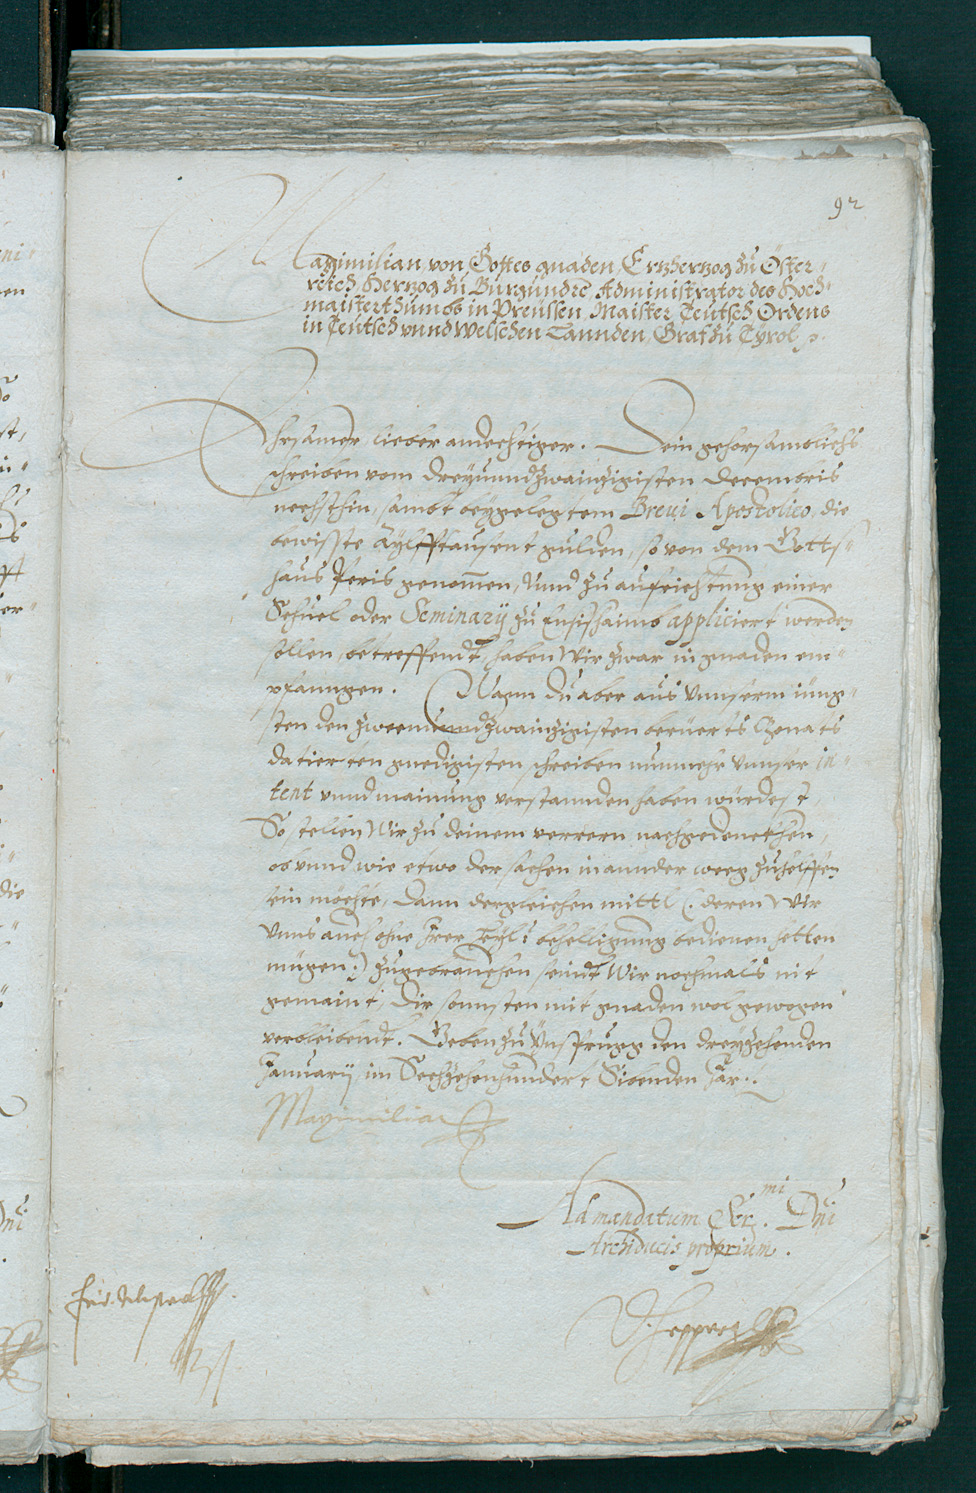 92
Maximilian von Gottes gnaden, Ertzhertzog zu Öster„
reich, Hertzog zu Burgundi, Administrator des Hoch„
maisterthumbs in Preussen, Maister Teutsch Ordens
in Teutsch unnd Welschen Lannden, Graf zu Tyrol
Ehrsamer, lieber andechtiger. Dein gehorsamblichs
schreiben vom dreyundzwainzigisten Decembris
nechsthin, sambt beygelegtem Breui Apostolico, die
bewisste Aylfftausent gulden, so von dem Gotts„
haus Peris genommen, unnd zu aufrichtung einer
Schuel oder Seminarij zu Ensishaimb appliciert werden
sollen, betreffendt, haben Wir zwar in gnaden em„
pfanngen. Wann du aber aus Unnserm iüng„
sten den zweenundzwainzigisten berüerts Monats
datierten gnedigisten schreiben nunmehr Unnser in„
tent unnd mainung verstannden haben würdest,
So stellen Wir zu deinem verrern nachgedenckhen,
ob unnd wie etwo der sachen in annder weeg zuhelffen
sein möchte, Dann dergleichen mittl (: deren Wir
Unns auch ohne Irer Heyl: behelligung bedienen hetten
mügen :) zugebrauchen seindt Wir nochmals nit
gemaint, Dir sonnsten mit gnaden wol gewogen
verbleibendt. Geben zu Ynsprugg den dreyzehenden
Januarij im Sechzehenhundert Sibenden Jar.
Maximilian
Ad mandatum Ser.mi Dni
Archiducis proprium.